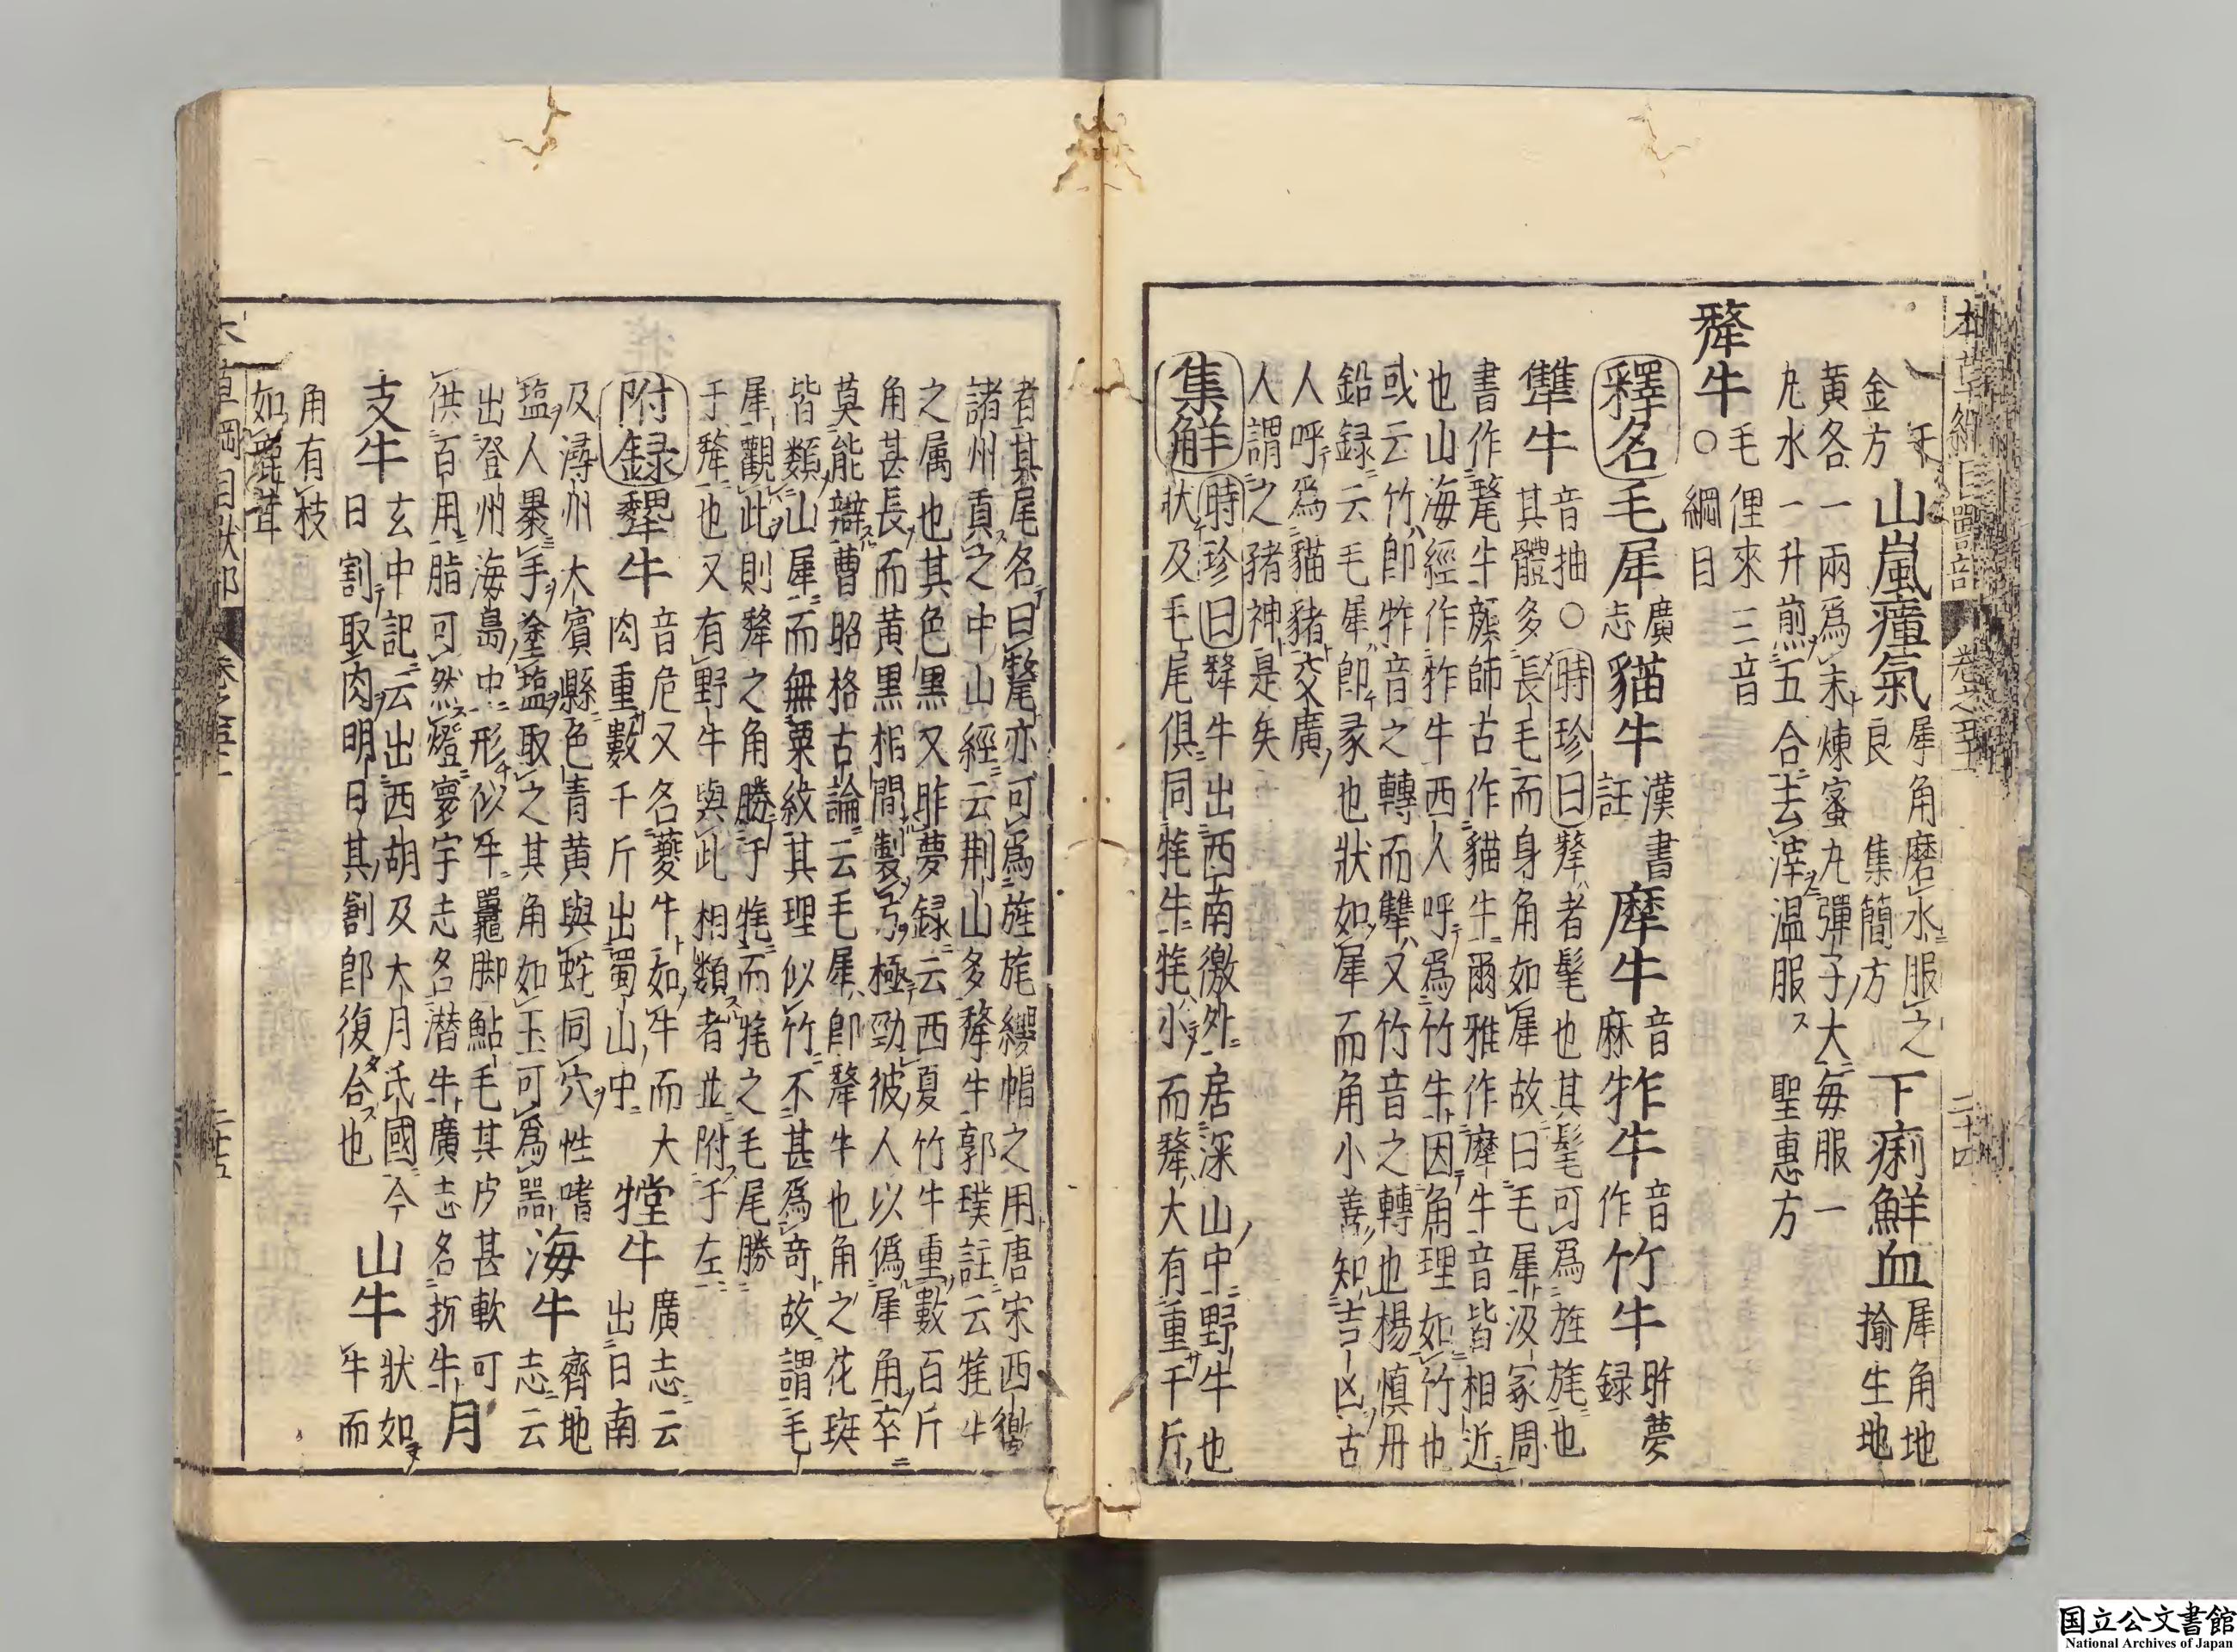 本草綱目獸部 卷之五十一 二十四
金方 山嵐瘴氣 犀角磨水服之 下痢鮮血 犀角地
良 集簡方 揄生地
黃各一兩爲末煉蜜丸彈子大每服一
丸水一升煎五合去滓温服 聖惠方
犛牛 毛俚來三音
○綱目
釋名 毛犀 廣志 貓牛 漢書註 犘牛 音麻 㸲牛 音作 竹牛 昨夢録
犨牛 音抽○時珍曰犛者髦也其髦可爲旌旄也
其體多長毛而身角如犀故曰毛犀汲冢周
書作氂牛顔師古作貓牛爾雅作犘牛音皆相近
也山海經作㸲牛西人呼爲竹牛因角理如竹也
或云竹即㸲音之轉而犨又竹音之轉也楊慎丹
鉛録云毛犀即彖也狀如犀而角小善知吉凶古
人呼爲貓豬交廣
人謂之豬神是矣
集解 時珍曰犛牛出西南徼外居深山中野牛也
狀及毛尾俱同牦牛牦小而犛大有重千斤
者其尾名曰氂亦可爲旌旄纓帽之用唐宋西徼
諸州貢之中山經云荆山多犛牛郭璞註云牦牛
之属也其色黒又昨夢録云西夏竹牛重數百斤
角甚長而黄黒相間製弓極勁彼人以僞犀角卒
莫能辯曹昭格古論云毛犀即犛牛也角之花斑
皆類山犀而無粟紋其理似竹不甚爲奇故謂毛
犀觀此則犛之角勝于牦而牦之毛尾勝
于犛也又有野牛與此相類者並附于左
附録 犩牛 音危又名夔牛如牛而大
肉重數千斤出蜀山中 㹚牛 廣志云
出日南
及潯州大賓縣色青黄與蛇同穴性嗜
塩人裹手塗塩取之其角如玉可爲噐 海牛 齊地
志云
出登州海島中形似牛鼉脚鮎毛其皮甚軟可
供百用脂可然燈寰宇志名潜牛廣志名㧊牛 月
支牛 玄中記云出西胡及大月氏國今
日割取肉明日其創即復合也 山牛 狀如
牛而
角有枝
如鹿茸
本草綱目獸部 卷之五十一 二十五
国立公文書館
National Archives of Japan